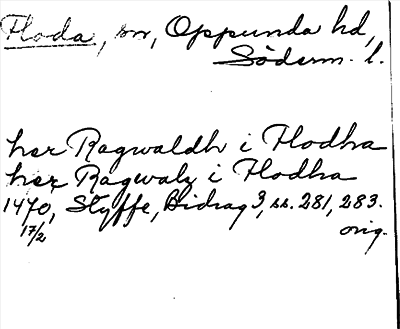 Floda, sn, Oppunda hd,
Söderm. l.
her Ragwaldh i Flodha
her Ragwalz i Flodha
1470, Styffe, Bidrag 3, ss. 281, 283.
17/2 orig.